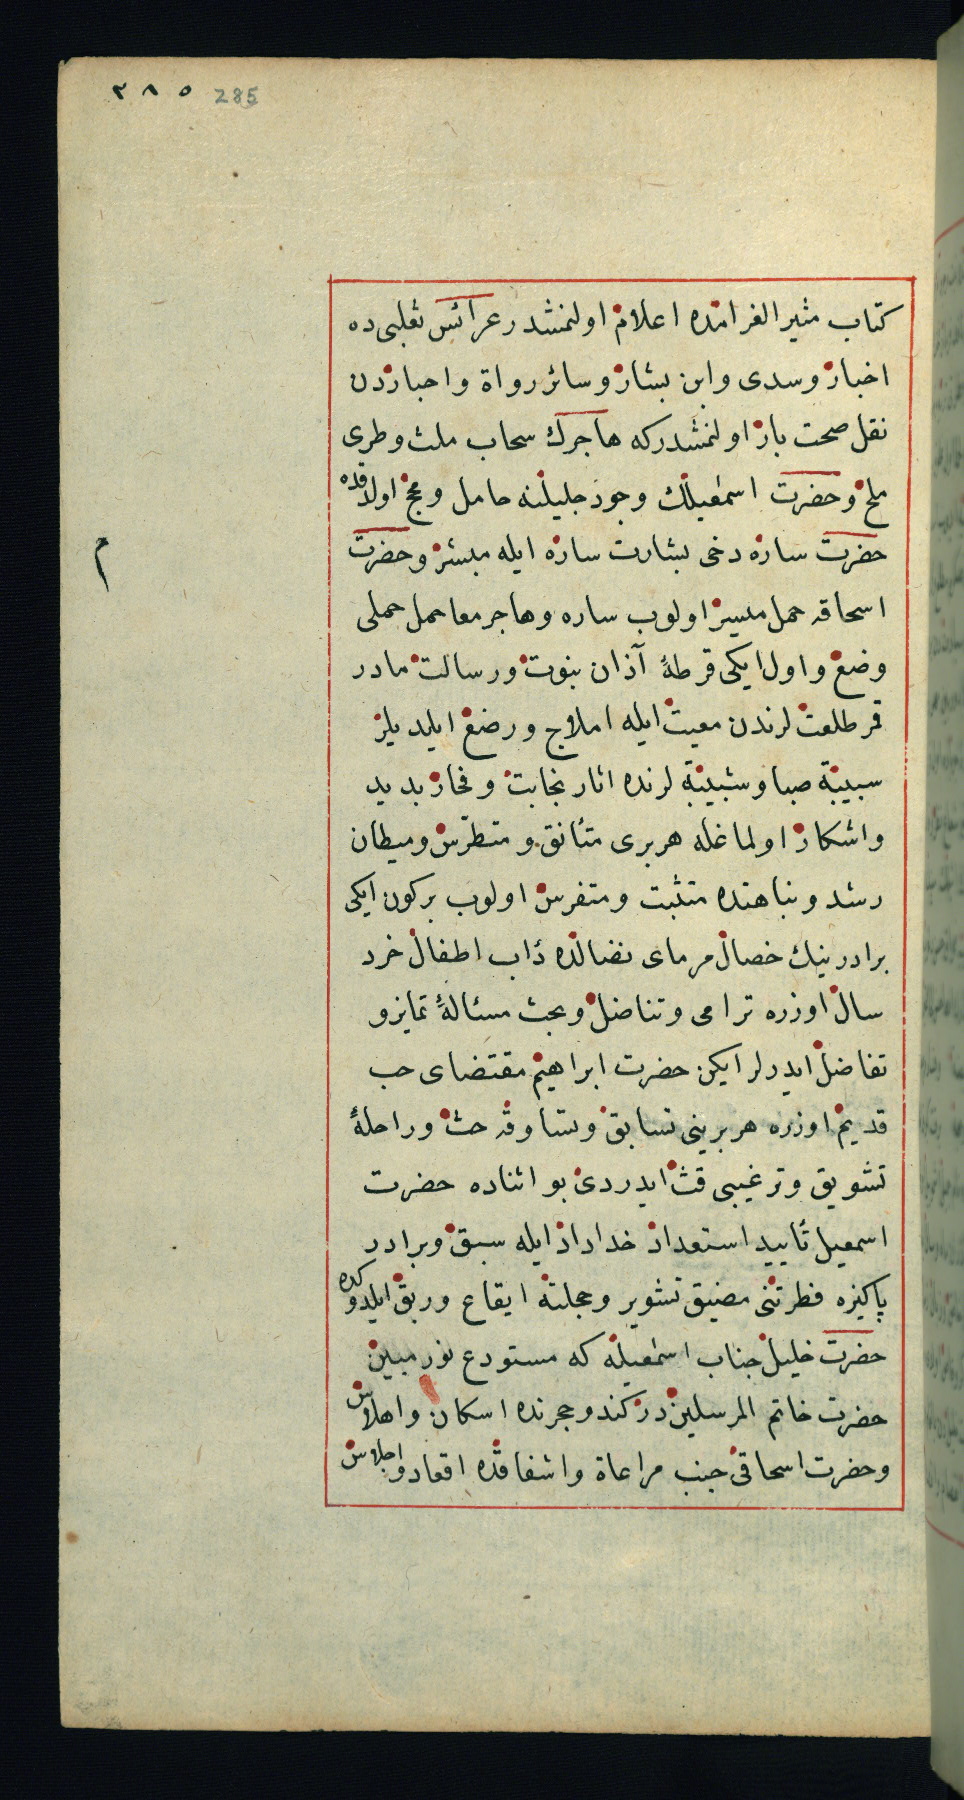 ٢٨٥ 285
كتاب مثير الغرامده اعلام اولنمشدر عرائس ثعلبى ده
اخبار وسدى وابن بشار وسائر رواة واحباردن
نقل صحت بار اولنمشدركه هاجرك سحاب ملث وطرى
ملح وحضرت اسمعيلك وجود جليلنه حامل ومجح اولدقده
حضرت ساره دخى بشارت ساره ايله مبشر وحضرت
اسحاقه حمل ميسر اولوب ساره وهاجر معا حمل حملى
وضع واول ايكى قرطهٔ آذان نبوت ورسالت مادر
قمر طلعت لرندن معيت ايله املاج ورضع ايلديلر
سبيبهٔ صبا وشبيبهٔ لرنده اثار نجابت وفخار بديد
واشكار اولماغله هربرى متأنق و متطرس وميطان
رشد ونباهتده متثبت ومتفرس اولوب بركون ايكى
برادر نيك خصال مرماى نضالده دأب اطفال خرد
سال اوزره ترامى وتناضل وبحث مسئالهٔ تمايز و
تفاضل ايدرلر ايكن حضرت ابراهيم مقتضاى حب
قديم اوزره هربرينى تسابق وتساوقه حث وراحلهٔ
تشويق وترغيبى قث ايدردى بو اثناده حضرت
اسمعيل تأييد استعداد خداداد ايله سبق وبرادر
پاكيزه فطرتنى مضيق تشوير وخجلته ايقاع وربق ايلدوكده
حضرت خليل جناب اسمعيله كه مستودع نور مبين
حضرت خاتم المرسلين در كند وحجرنده اسكان واهلاس
وحضرت اسحاقى جنب مراعاة واشفاقده اقعاد واجلاس
م